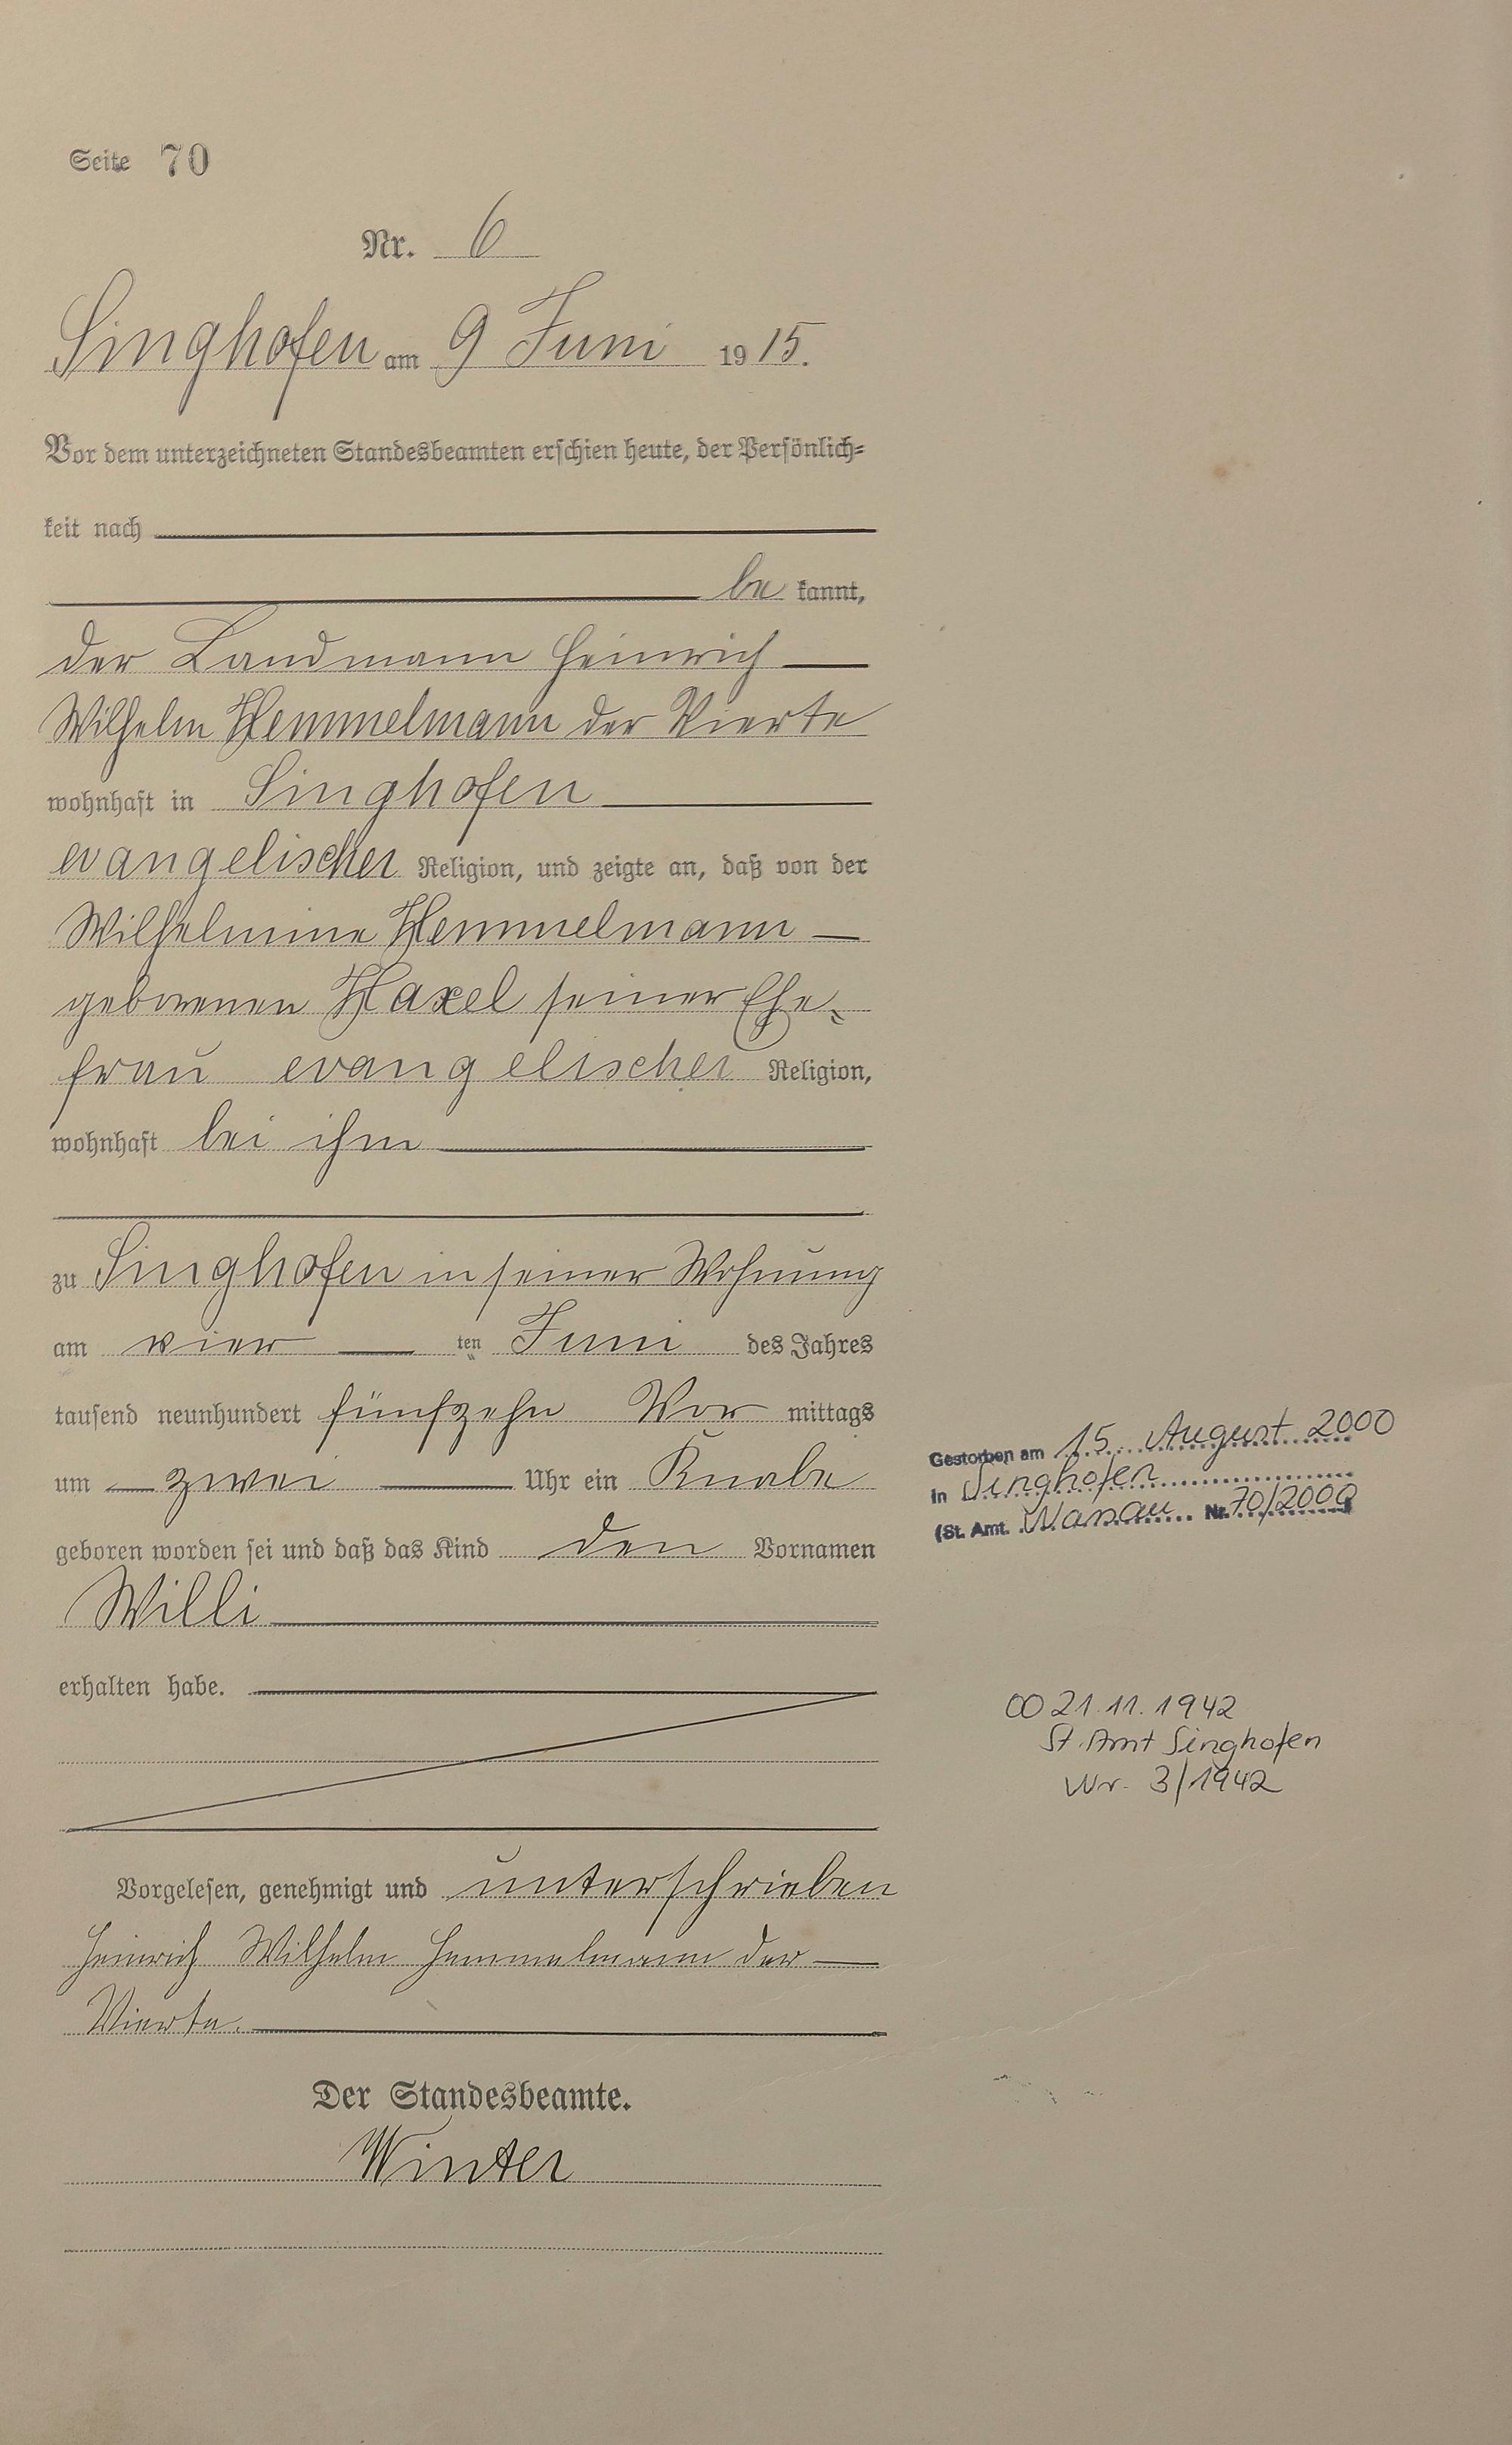 Seite 70
Nr. 6
Singhofen am 9 Juni 1915.
Vor dem unterzeichneten Standesbeamten erschien heute, der Persönlich=
keit nach
be kannt,
der Landmann Heinrich
Wilhelm Hemmelmann der Vierte
wohnhaft in Singhofen
evangelischer Religion, und zeigte an, daß von der
Wilhelmine Hemmelmann
geborenen Haxel seiner Ehe-
frau evangelischer Religion,
wohnhaft bei ihm
zu Singhofen in seiner Wohnung
am vier ten Juni des Jahres
tausend neunhundert fünfzehn Vor mittags
um zwei Uhr ein Knabe
geboren worden sei und daß das Kind den Vornamen
Willi
erhalten habe.
Vorgelesen, genehmigt und unterschrieben
Heinrich Wilhelm Hemmelmann der
Vierte.
Der Standesbeamte.
Winter
Gestorben am 15. August 2000
in Singhofen
(St. Amt. Nassau Nr. 70/2000)
OO 21.11.1942
St. Amt Singhofen
Nr. 3/1942